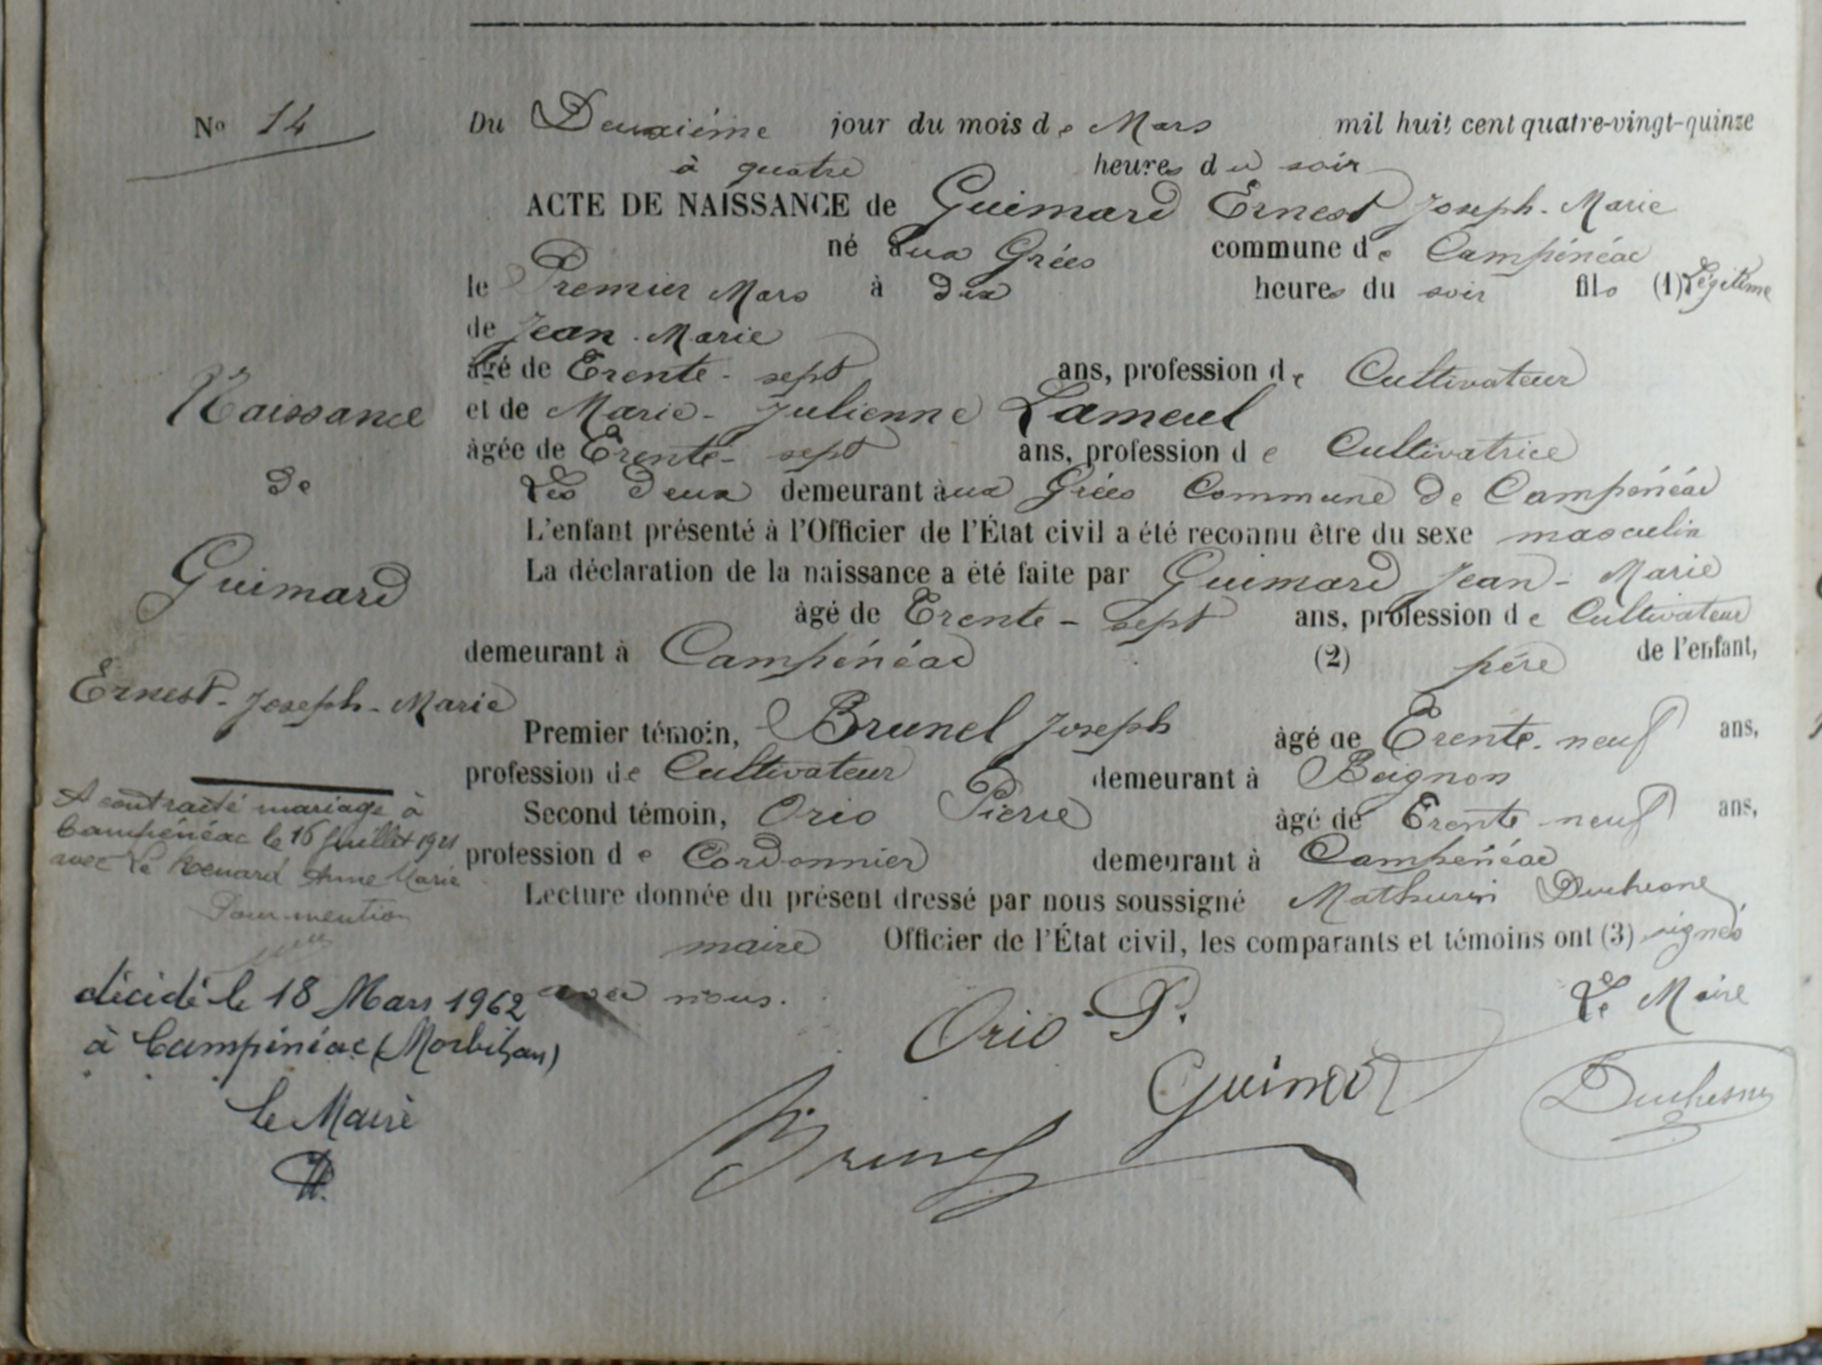 No 14
Du Deuxième jour du mois de Mars mil huit cent quatre-vingt-quinze
à quatre heures du soir
ACTE DE NAISSANCE de Guimard Ernest Joseph-Marie
né aux Grées commune de Campénéac
le Premier Mars à dix heures du soir fils (1) Légitime
de Jean-Marie
âgé de Trente-sept ans, profession de Cultivateur
et de Marie-Julienne Lameul
âgée de Trente-sept ans, profession de Cultivatrice
Les deux demeurant aux Grées Commune de Campénéac
L'enfant présenté à l'Officier de l'État civil a été reconnu être du sexe masculin
La déclaration de la naissance a été faite par Guimard Jean-Marie
âgé de Trente-sept ans, profession de Cultivateur
demeurant à Campénéac (2) père de l'enfant,
Premier témoin, Brunel Joseph âgé de Trente-neuf ans,
profession de Cultivateur demeurant à Beignon
Second témoin, Orio Pierre âgé de Trente-neuf ans,
profession de Cordonnier demeurant à Campénéac
Lecture donnée du présent dressé par nous soussigné Mathurin Duchesne
maire Officier de l'État civil, les comparants et témoins ont (3) signés
avec nous.
Orio P.
Le Maire
Guimard
Duchesne
Brunel
Naissance
de
Guimard
Ernest-Joseph-Marie
A contracté mariage à
Campénéac le 16 Juillet 1921
avec Le Renard Anne Marie
Pour mention
décidé le 18 Mars 1962
à Campénéac (Morbihan)
le Maire